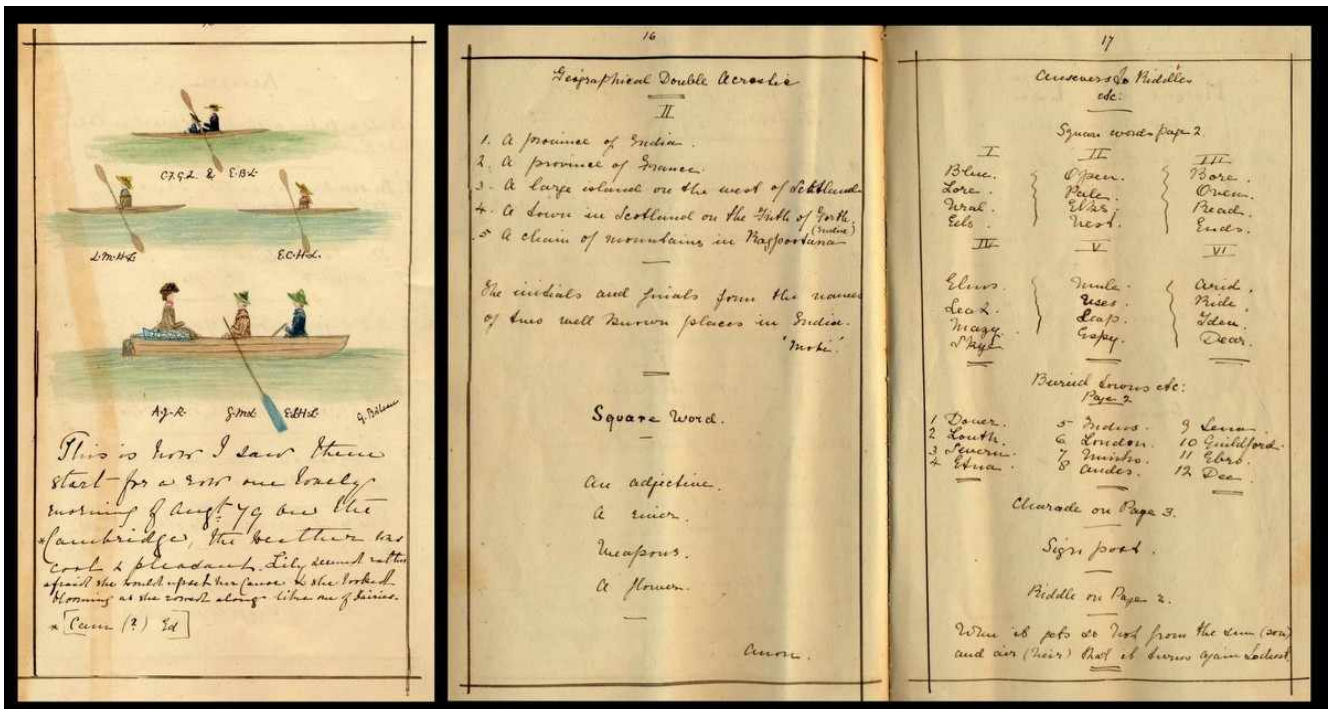 C.F.G.L. & E.B.L.
L.M.H.L. E.C.H.L.
A.J.R. G.M.L. E.L.H.L.
This is how I saw them
start for a row one lovely
morning of Augt. 79 on the
*Cambridge, the weather was
cool & pleasant. Lily seemed rather
afraid she would upset her canoe & she looked
blooming as she rowed along like one of
* [Cam (?) Ed]
16
Geographical Double Acrostic
II
1. A province of India.
2. A province of France.
3. A large island on the west of Scotland
4. A town in Scotland on the Firth of Forth.
5 A chain of mountains in (India)
The initials and finals form the names
of two well known places in India.
Square Word.
An adjective.
A river.
Weapons.
A flower.
Anon.
17
Answers to Riddles
etc:
Square words page 2.
I II III
Blue. Open. Bore.
Lore. Pale. Oven.
Ural. Read.
Eels. Nest. Ends.
IV V VI
Elms. Mule. Arid.
Uses. Ride.
Mazy. Leap. Iden.
Skye Espy. Dear.
Buried towns etc:
Page 2
1 Dover. 5 Indus. 9 Lena.
2 Louth. 6 London. 10 Guildford.
3 Severn. 7 Minho. 11 Ebro.
4 Etna. 8 Andes. 12 Dee.
Charade on Page 3.
Sign post.
Riddle on Page 2.
When it gets so hot from the sun (son)
and air (heir) that it turns again